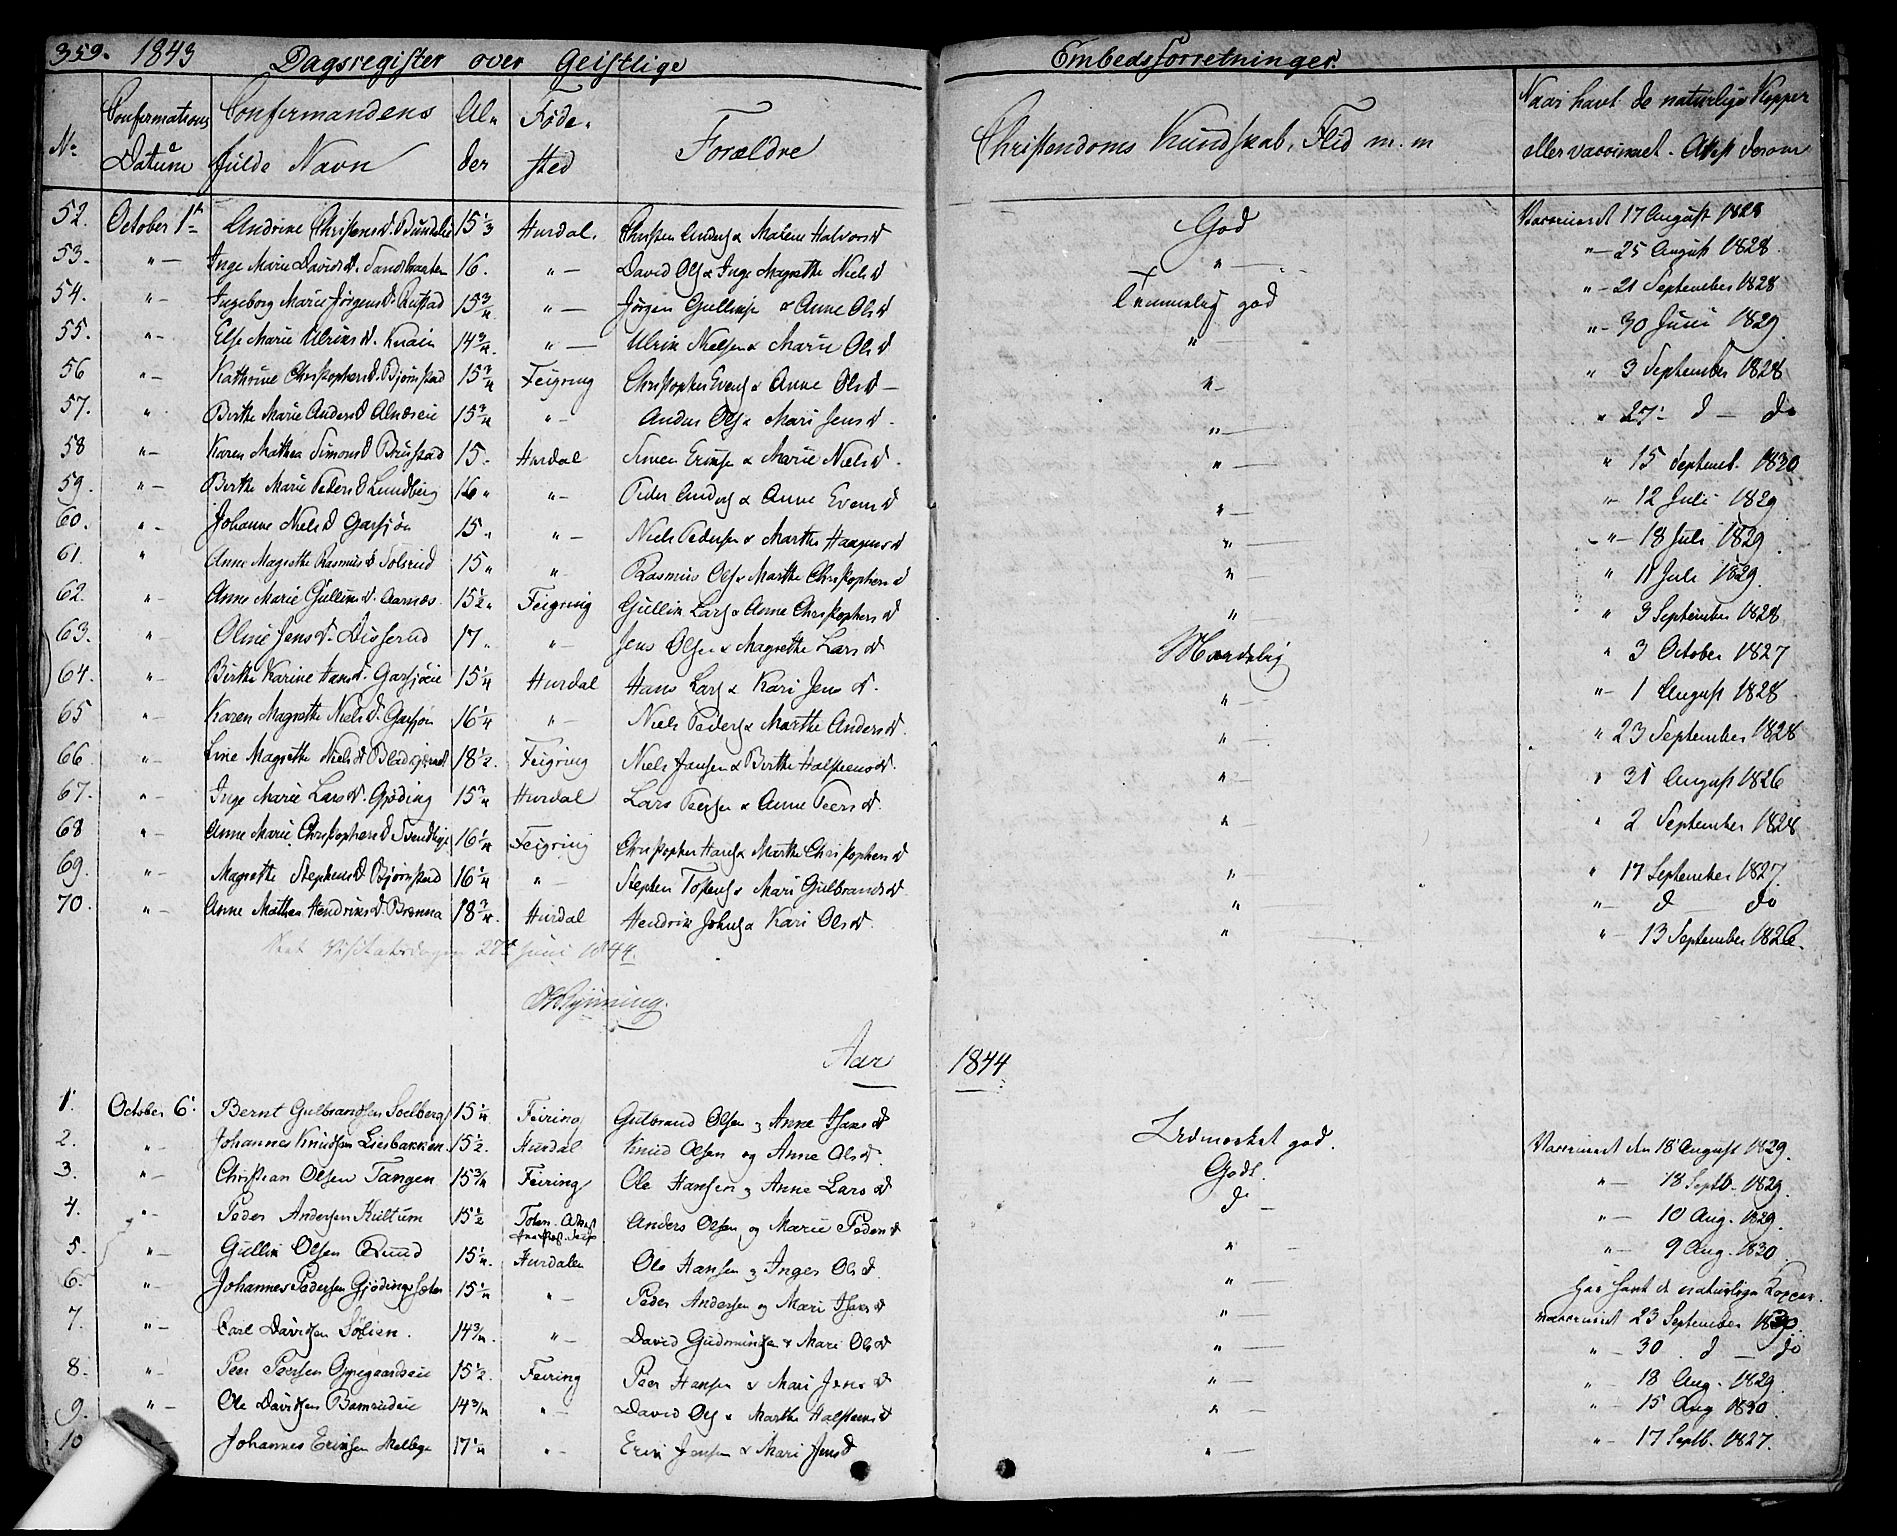 359. 1843 Dagsregister over Geistlige Embedsforretninger.
No Confirmations Datum Confirmandens fulde Navn Alder Føde-sted Forældre Christendoms Kundskab, Flid m. m Naar havt de naturlige Kopper eller vaccineret. Attest derom
52. October 1te Andrine Christensd. 15 1/3 Hurdal. Christen Anders & Malene Halvorsd God Vaccineret 17 August 1828
53. " — Inge Marie Davidsd. 16. " — David Ols & Inge Magrethe Nielsd " — " — 25 August 1828.
54. " - Ingeborg Marie Jørgensd. Rustad 15 3/4 " — Jørgen Gulliks & Anne Olsd Temmelig god " — 21 September 1828
55. " - Else Marie Ulriksd. Knain 14 3/4. " — Ulrik Nielsen & Marie Olsd " " - 30 Juni 1829.
56 " - Kathrine Christophersd. Bjørnstad 15 3/4 Feigring Christopher Evens & Anne Olsd — " - " 3 September 1828
57. " Birthe Marie Andersd Alnæseie 15 3/4 " - Anders Ols & Mari Jensd - " — " 27 - d — do
58 " - Karen Mathea Simonsd Brustad 15. Hurdal Simen Eriks & Marie Nielsd. " — " 15 Septemb. 1830
59. " - Birthe Marie Pedersd Lundbeig 16 " " - Peder Anders & Anne Evensd " — " 12 Juli 1829
60. " - Johanne Nielsd Garsjøn 15. " - Niels Pedersen & Marthe Haagensd " — " — 18 Juli 1829.
61. " Anne Magrethe Rasmusd Solsrud 15 " " Rasmus Ols & Marthe Christophersd " — " 11 Juli 1829.
62. " - Anne Marie Gulliksd. Aarnæs. 15 1/2. Feigring Gullik Lars & Anne Christophersd " — " 3 September 1828
63. " - Oline Jensd. Disserud 17. " - Jens Olsen & Magrethe Larsd Maadelig " 3 October 1827
64. " - Birthe Karine Hansd. Garsjøeie 15 1/4 Hurdal Hans Lars & Kari Jensd. " — " - 1 August 1828
65 " - Karen Magrethe Nielsd. Garsjøn 16 1/4 " - Niels Peders & Marthe Andersd. " — " 23 September 1828
66. " - Line Magrethe Nielsd 18 1/2. Feigring Niels Jansen & Birthe Halsteensd. " — " 31 August 1826
67. " - Inge Marie Larsd. Gjøding 15 3/4 Hurdal Lars Peersen & Anne Peersd. " — " 2 September 1828
68 " - Anne Marie Christophersd 16 1/4 Feigring Christopher Hans & Marthe Christophersd " — " 17 September 1827.
69. " - Magrethe Stephensd Bjørnstad 16 1/4 " — Stephen Tostens & Mari Gulbrandsd " — " — d — do
70. " - Anne Mathea Hendriksd. Brænna 18 3/4. Hurdal Hendrik Johns & Kari Olsd. " " — 13 September 1826.
Visitatsdagen 27de Juni 1844.
Aar 1844.
1. October 6. Bernt Gulbrandsen Soelberg 15 1/4 Feiring Gulbrand Olsen og Anne Hansd Udmærket god. Vaccineret den 18 August 1829.
2. " - Johannes Knudsen Liesbakken 15 1/2. Hurdal Knud Olsen og Anne Olsd. Godt. " — 18 Septb. 1829.
3. " - Christian Olsen Tangen 15 3/4 Feiring Ole Hansen og Anne Larsd d — " — 10 Aug. 1829.
4. " - Peder Andersen Kultum 15 1/2 Toten. Anders Olsen og Marie Pedersd " — " — 9 Aug. 1830.
5. " - Gullik Olsen Ruud 15 1/4. Hurdalen Ole Hansen og Inger Olsd. " — har havt de naturlige Kopper.
6. " - Johannes Pedersen Gjødingsæter 15 1/4 " - Peder Andersen og Mari Hansd " — vaccineret 23 September 1830.
7. " - Carl Davidsen Sølien. 14 3/4. " — David Gudmundsen & Mari Olsd " — " — 30 d — do
8. " - Peer Peersen 15 1/2. Feiring Peer Hansen & Mari Jensd " — " — 18 Aug. 1829.
9. " - Ole Davidsen 14 3/4 " - David Ols & Marthe Halsteensd " — " - 15 Aug 1830.
10 Johannes Eriksen Melbye 17 1/4 " - Erik Jensen & Mari Jensd " — " — 17 Septb. 1827.